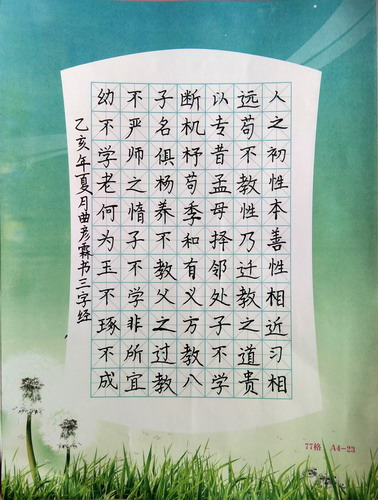 人之初性本善性相近习相
远苟不教性乃迁教之道贵
以专昔孟母择邻处子不学
断机杼苟季和有义方教八
子名俱杨养不教父之过教
不严师之惰子不学非所宜
幼不学老何为玉不琢不成
乙亥年夏月曲彦霖书三字经
77格 A4-23